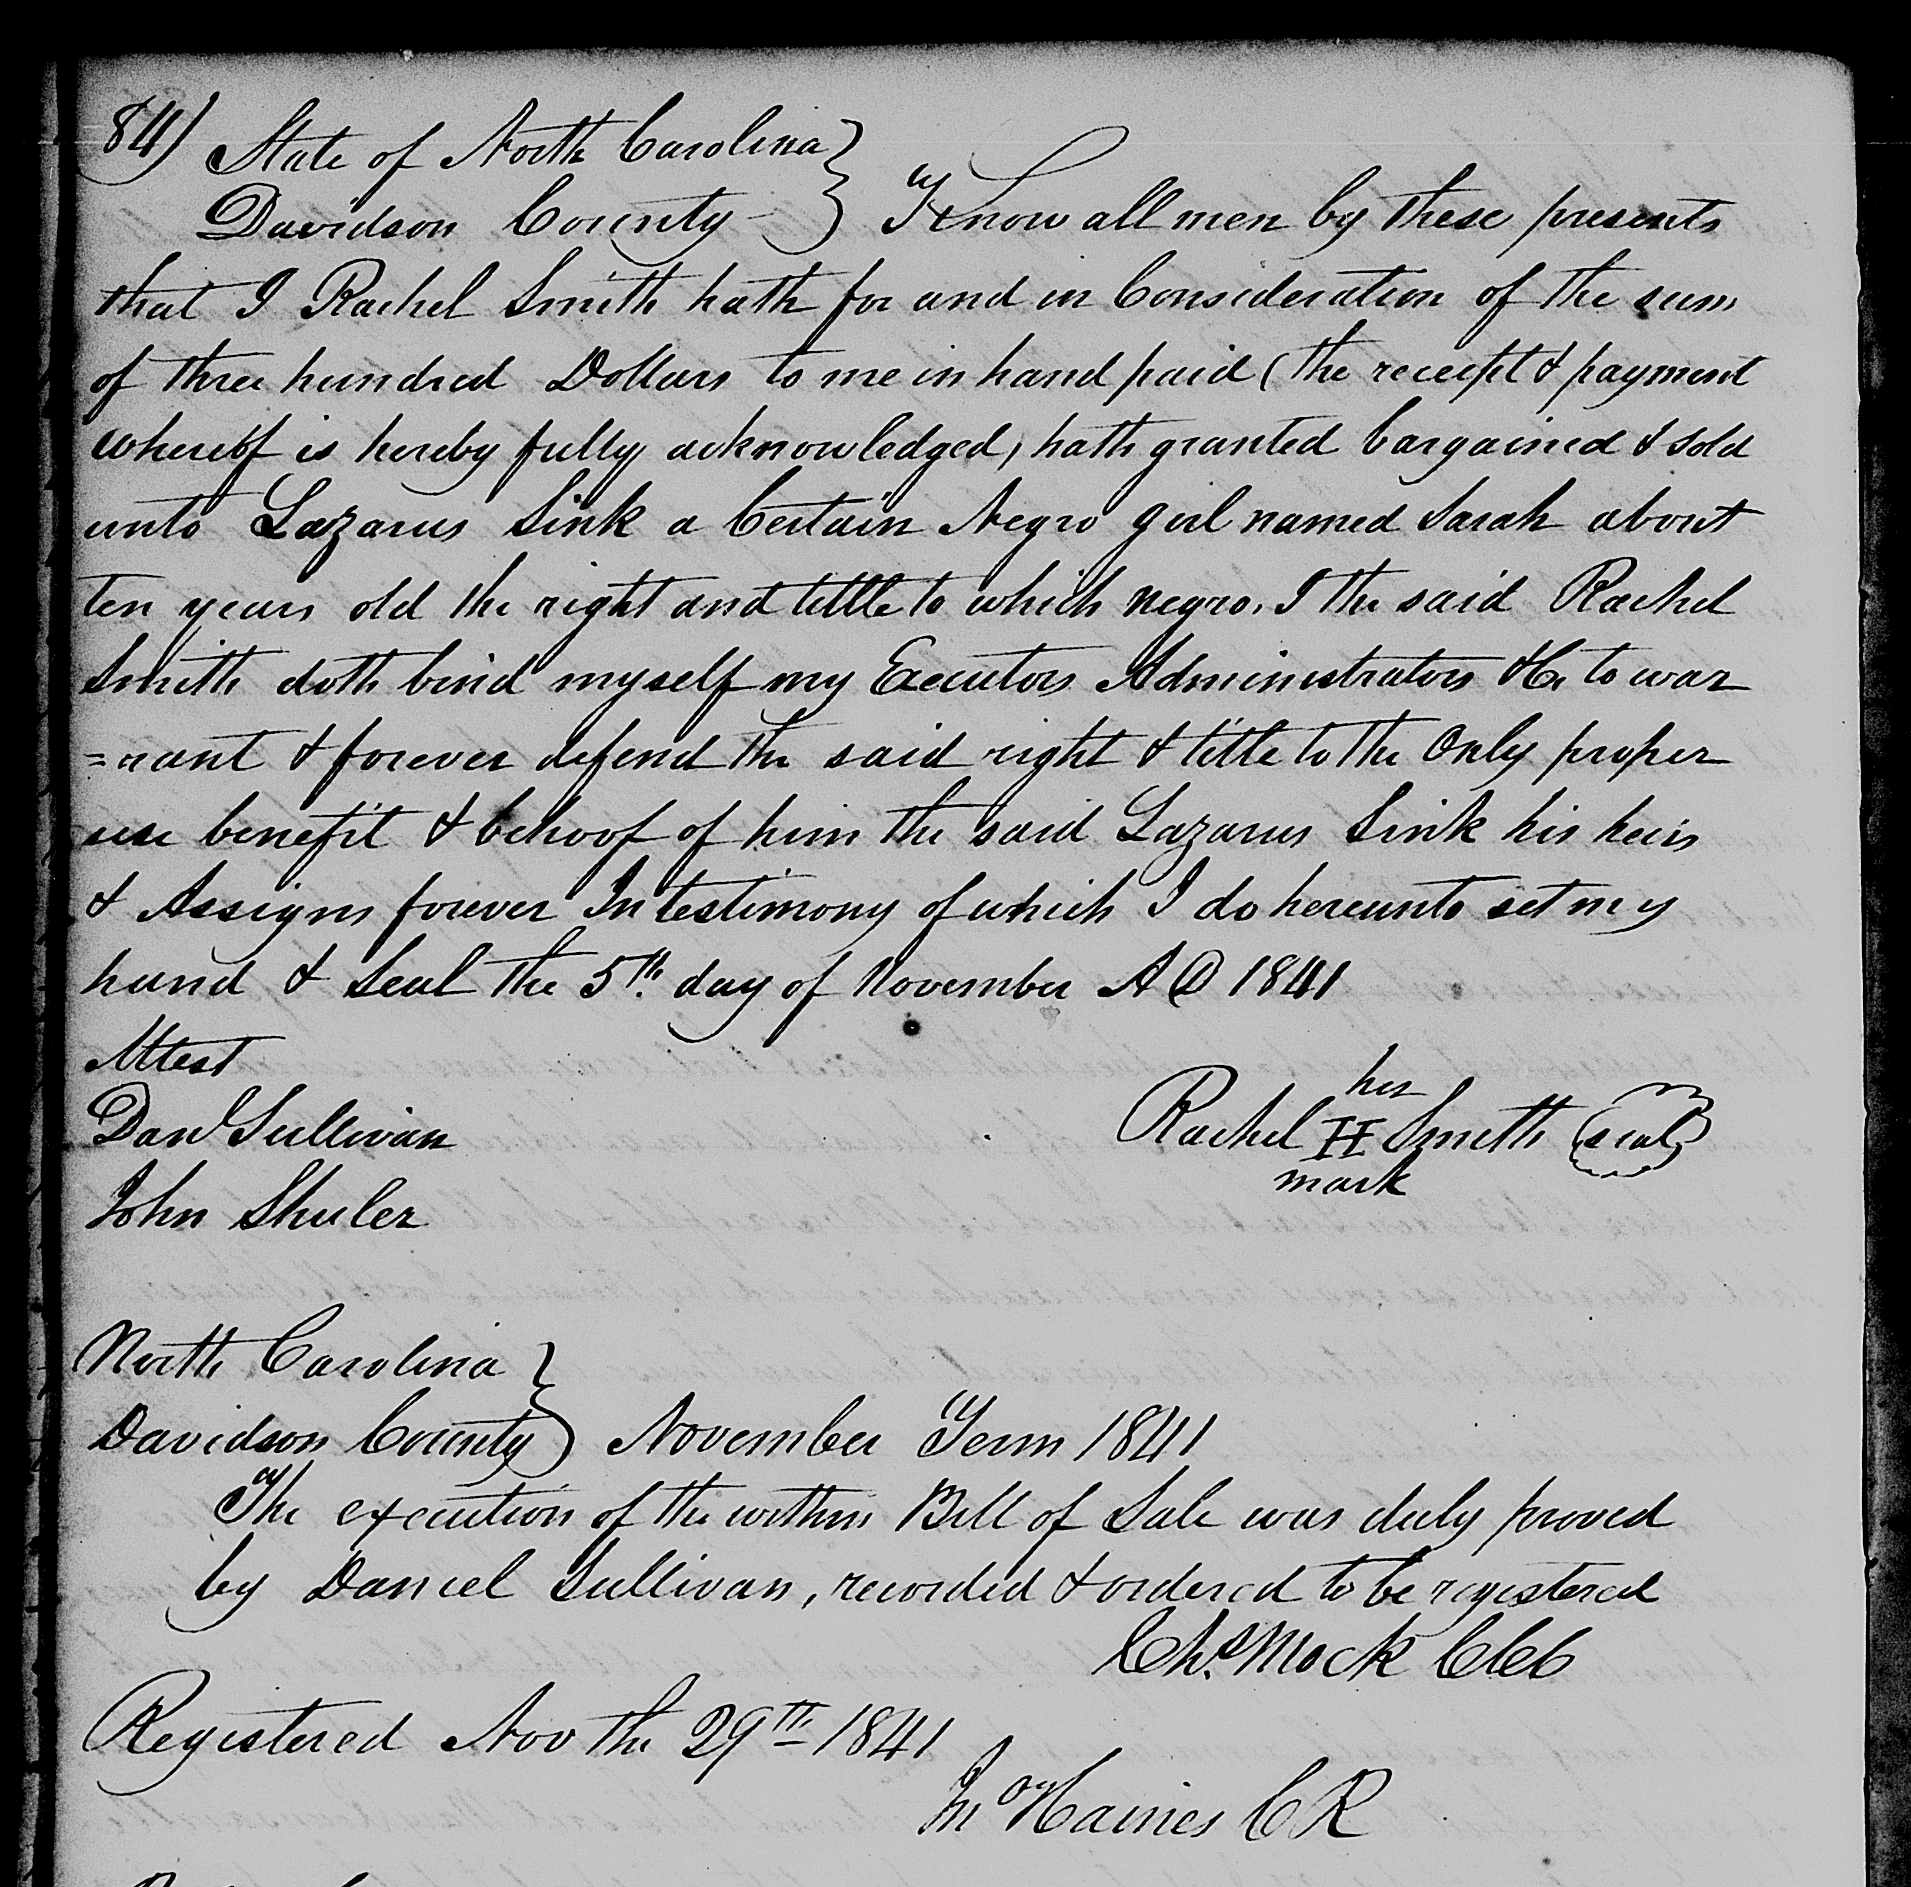 84) State of North Carolina }
Davidson County - } Know all men by these presents
that I Rachel Smith hath for and in Consideration of the sum
of three hundred Dollars to me in hand paid (the receipt & payment
whereof is hereby fully acknowledged) hath granted bargained & sold
unto Lazarus Sink a Certain Negro girl named Sarah about
ten years old the right and tittle to which negro, I the said Rachel
Smith doth bind myself my Executors Administrators &C. to war
=rant & forever defend the said right & title to the Only proper
use benefit & behoof of him the said Lazarus Sink his heirs
& Assigns forever In testimony of which I do hereunto set my
hand & Seal the 5th. day of November A D 1841
Attest
her
Danl Sullivan Rachel H Smith (seal)
mark
John Shuler
North Carolina }
Davidson County } November Term 1841
The execution of the within Bill of Sale was duly proved
by Daniel Sullivan, recorded & ordered to be registered
Chs. Mock CCC
Registered Nov the 29th 1841
Jn Haines CR